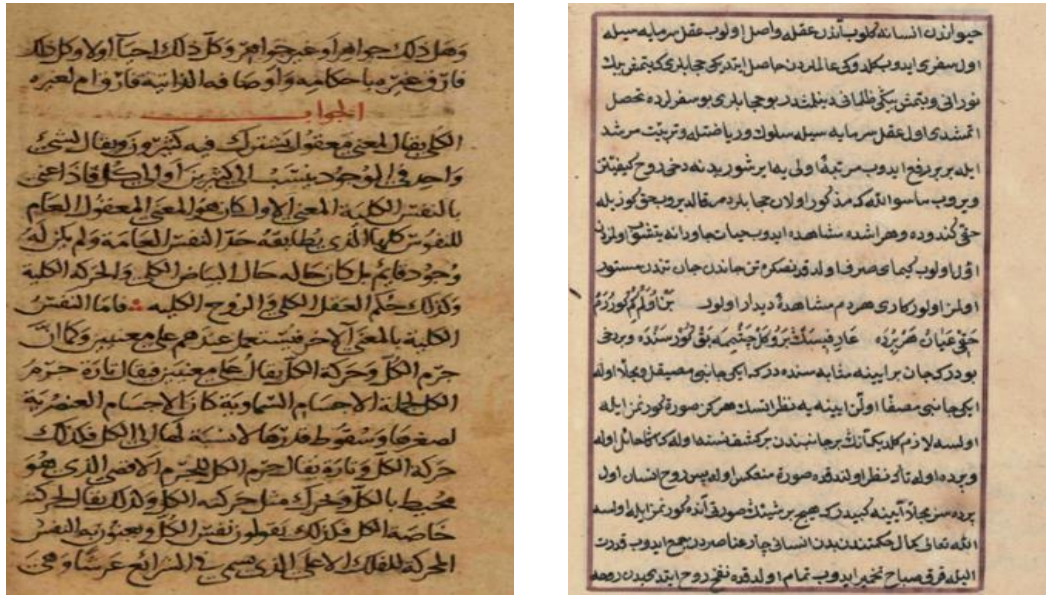 وهل ذلك جواهر او غير جواهر وكل ذلك احيآ اولا وكل ذلك
فارق غيره باحكامه واوصافه الذاتية فارق ام لغيره
الجواب
الكلي يقال لمعنى معقول يشترك فيه كثيرون ويقال لشئ
واحد في الوجود ينتسب الى كثيرين او الى كل فاذا عنى
بالنفس الكلية المعنى الاول كان هو المعنى المعقول العام
للنفوس كلها الذي يطابقه حد النفس العامة ولم يكن له
وجود قايم بل كان حاله حال البياض الكلي والحركة الكلية
وكذلك حكم العقل الكلي والروح الكليه فاما النفس
الكلية بالمعنى الآخر فيستعمل عندهم على معنيين وكما ان
جرم الكل وحركة الكل يقال على معنيين فيقال تارة جرم
الكل لجملة الاجسام السماوية كان الاجسام العنصرية
لصغرها وسقوط قدرها لا نسبة لها الى الكل فكذلك
حركة الكل وتارة يقال جرم الكل للجرم الاقصى الذي هو
محيط بالكل ومحرك مثل حركته الكل ولذلك يقال لحركته
خاصة الكل فكذلك يقولون نفس الكل ويعنون به النفس
المحركة للفلك الاعلى الذي يسمى في الشرائع عرشا وهي
حيواندن انسانه كلوب آندن عقله واصل اولوب عقل سرمايه سيله
اول سفرى ايدوب كلدوكى عالملردن حاصل ايتدركى حجابلرى كه يتمش بيك
نورانى ويتمش بيكى ظلمانى دينلشدر بو حجابلرى بو سفرلرده تحصل
اتمشدى اول عقل سرمايه سيله سلوك ورياضتله وتربيت مرشد
ايله بربر رفع ايدوب مرتبهٔ اولى يه ايرشور يدنه دخى روح كيفيتن
ويروب ماسوا الله كه مذكور اولان حجابلردر مقاله يروب حق كوزيله
حقى كندوده وهر اشده مشاهده ايدوب حيات جاودانه يتشور اولزدن
اول اولوب كيماى صرف اولدقدنصكره تن جاندن جان تندن مستور
اولمز اولور كارى هردم مشاهدهٔ ديدار اولور
حقى عيان هر يرده عارفيسك برو كل چشميمه بق نور سنده ويردخى
بودركه جان بر آيينه مثابه سنده دركه ايكى جانبى مصيقل ومجلا اوله
ايكى جانبى مصفا اولن آيينه يه نظر اتسك هركز صورة كورنمز ايله
اولسه لازم كلديكه آنك بر جانبندن بر كشف نسنه اوله كه كا حائل اوله
وپرده اوله تاكه نظر اولندقده صورة منعكس اوله پس روح انسان اول
پرده سز مجلا آيينه كبيدركه هيچ بر شيئك صورتى آنده كورنمز ايله اولسه
الله تعالى كمال حكمتندن بدن انسانى چار عناصردن جمع ايدوب قدرت
اليله قرق صباح تخمير ايدوب تمام اولدقده نفخ روح ايتدى بدن روحه